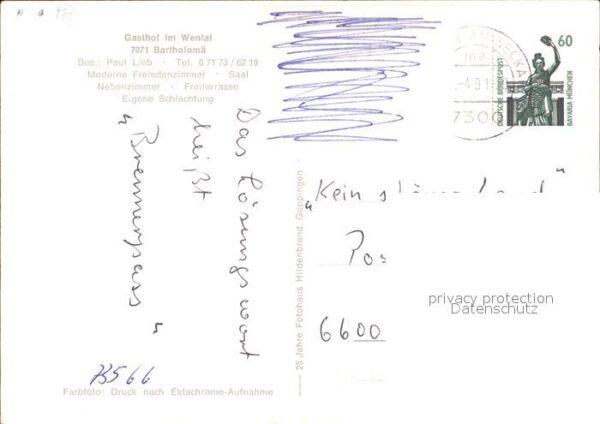 Gasthof im Wental
7071 Bartholomä
Bes.: Paul Lieb · Tel. 0 71 73 / 62 19
Moderne Fremdenzimmer · Saal
Nebenzimmer · Freiterrasse
Eigene Schlachtung
Das Lösungswort
heißt
"Brennerpass"
B566
Farbfoto: Druck nach Ektachrome-Aufnahme
25 Jahre Fotohaus Hildenbrand, Göppingen
60
DEUTSCHE BUNDESPOST
BAVARIA MÜNCHEN
-4.91
7300
"Kein
Pos
6600
privacy protection
Datenschutz